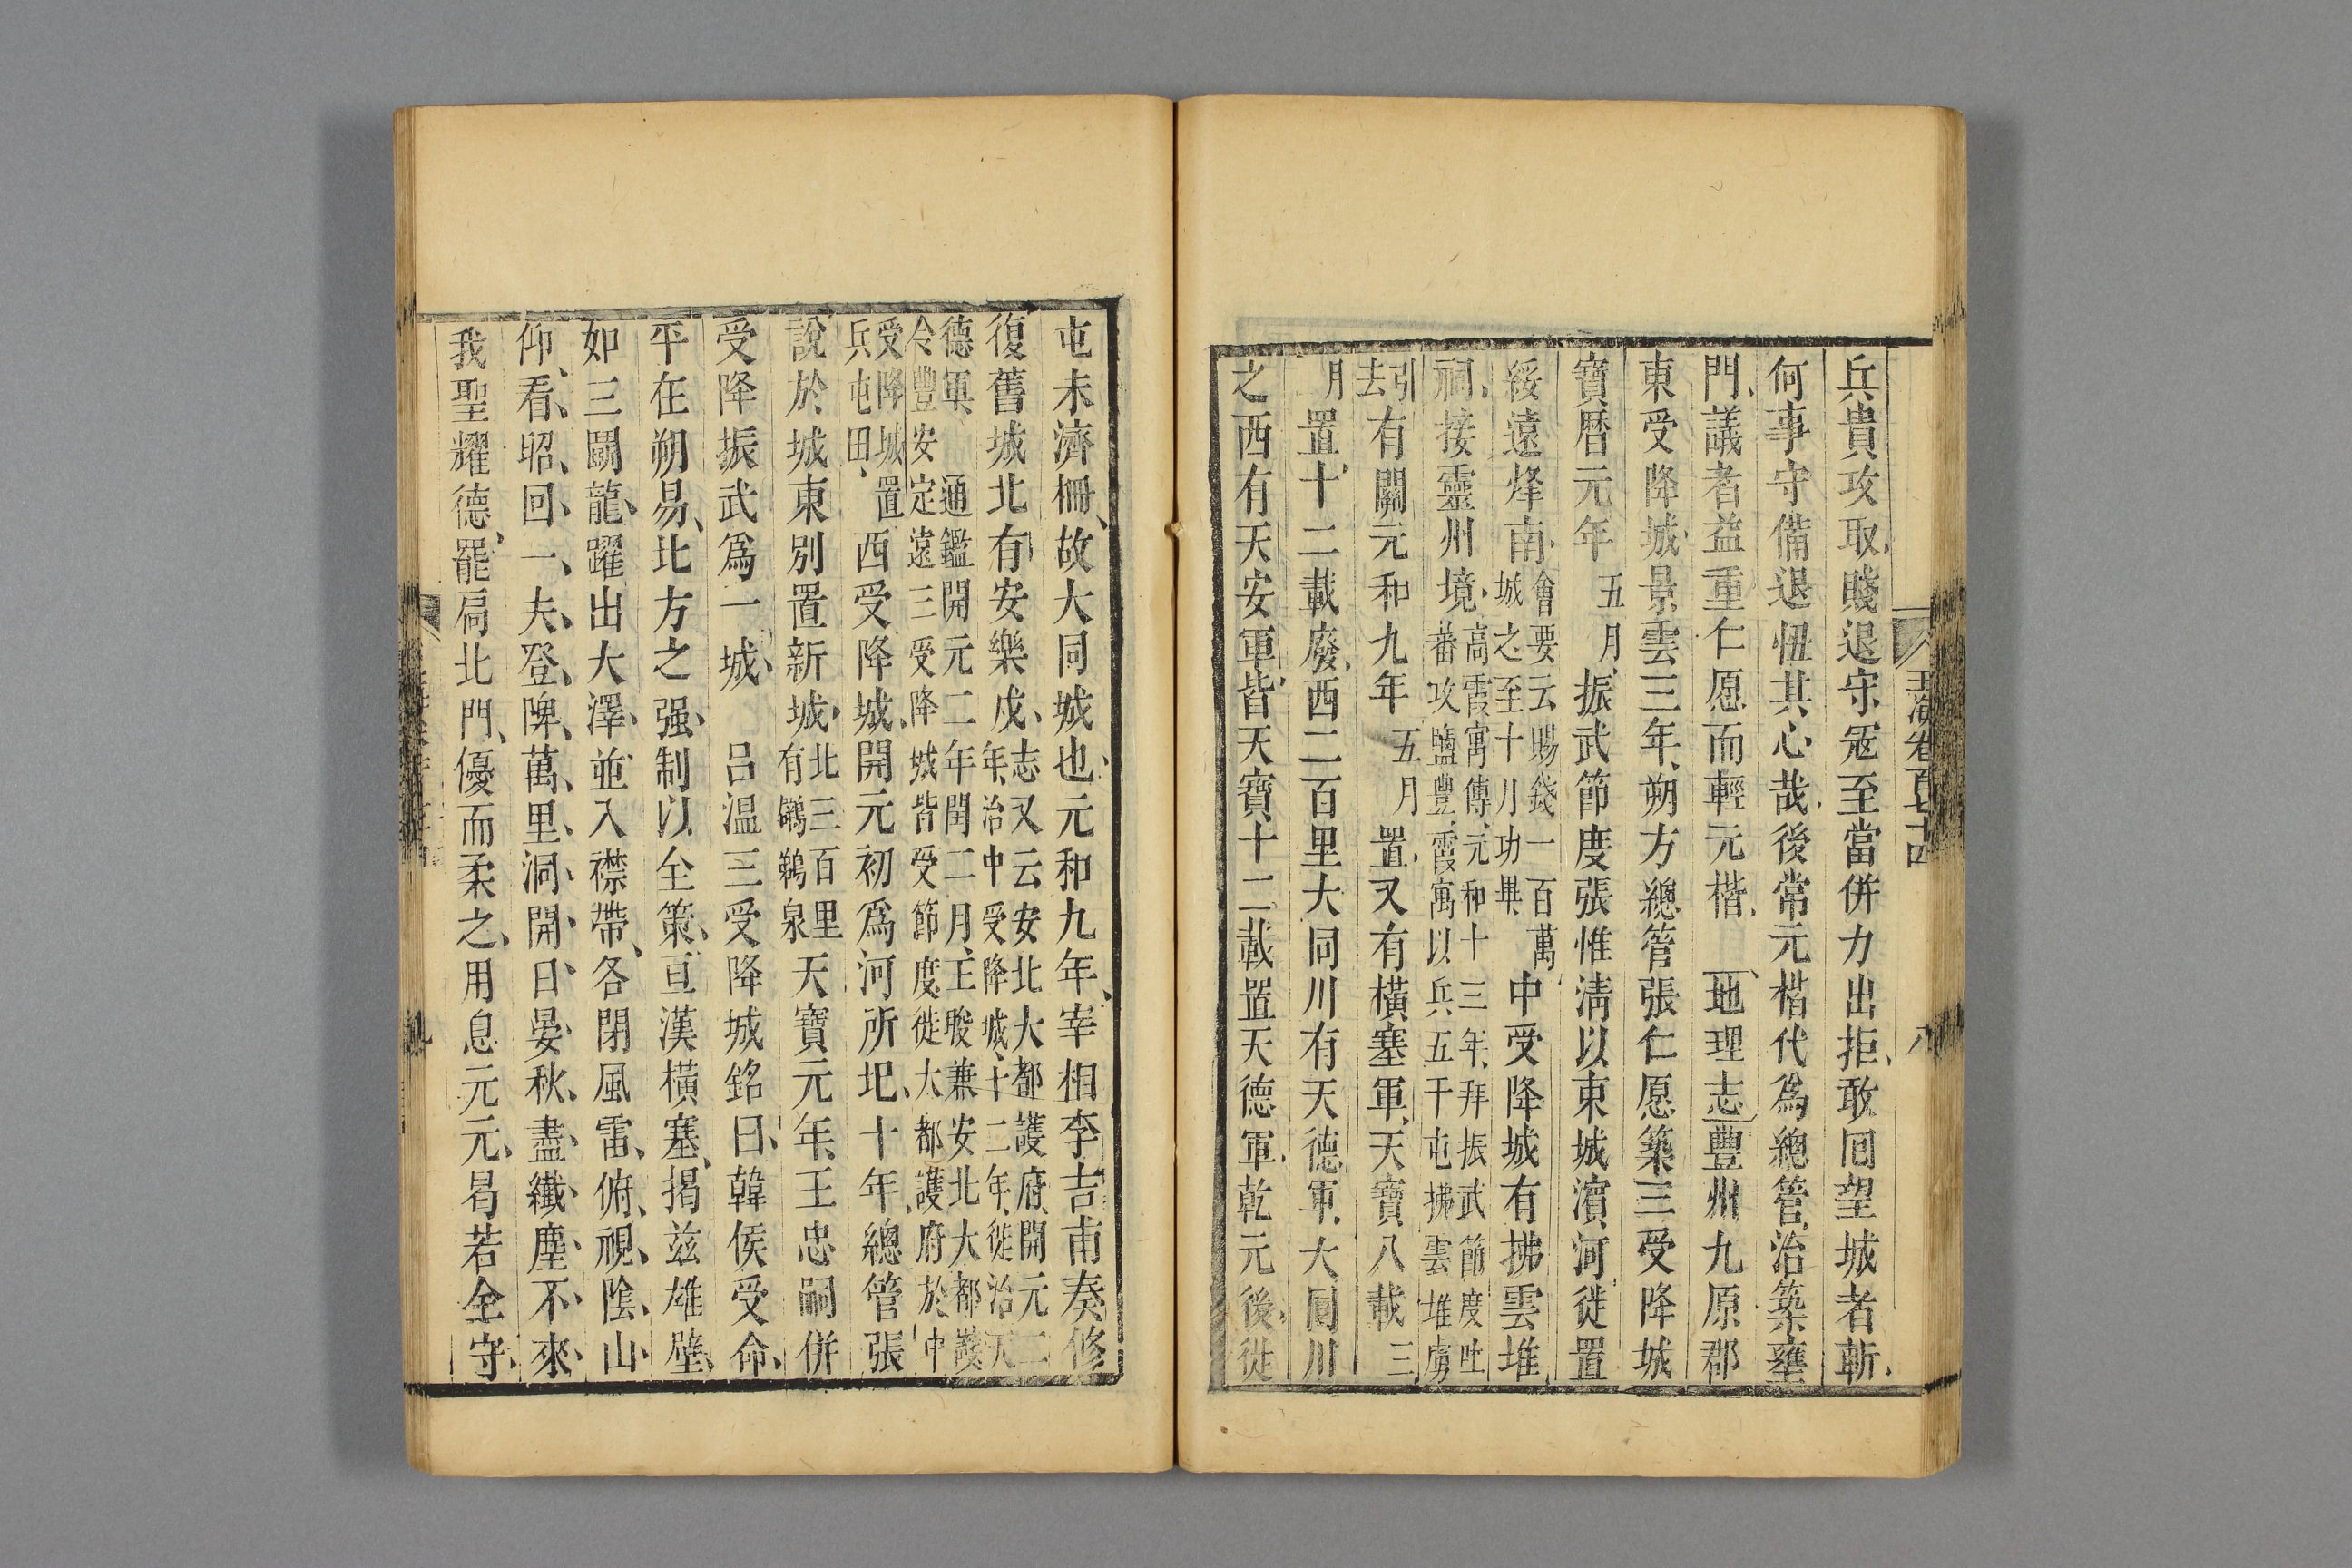 兵貴攻取賤退守寇至當併力出拒敢回望城者斬
何事守備退忸其心哉後常元楷代爲總管治築壅
門議者益重仁愿而輕元楷 地理志豐州九原郡
東受降城景雲三年朔方總管張仁愿築三受降城
寶曆元年五月振武節度張惟清以東城濱河徙置
綏遠烽南會要云賜錢一百萬城之至十月功畢中受降城有拂雲堆
祠接靈州境高霞寓傳元和十三年拜振武節度吐蕃攻鹽豐霞寓以兵五千屯拂雲堆虜
引去有關元和九年五月置又有橫塞軍天寶八載三
月置十二載廢西二百里大同川有天德軍大同川
之西有天安軍皆天寶十二載置天德軍乾元後徙
玉海卷
八
屯未濟柵故大同城也元和九年宰相李吉甫奏修
復舊城北有安樂戍志又云安北大都護府開元二年治中受降城十二年徙治天
德軍 通鑑開元二年閏二月王晙兼安北大都護
令豐安定遠三受降城皆受節度徙大都護府於中
受降城置兵屯田西受降城開元初爲河所圮十年總管張
說於城東別置新城北三百里有鸊鵜泉天寶元年王忠嗣併
受降振武爲一城 呂溫三受降城銘曰韓侯受命
平在朔易北方之强制以全策亘漢橫塞揭兹雄壁
如三鬭龍躍出大澤並入襟帶各閉風雷俯視陰山
仰看昭回一夫登陴萬里洞開日晏秋盡纖塵不來
我聖耀德罷扃北門優而柔之用息元元曷若全守
九